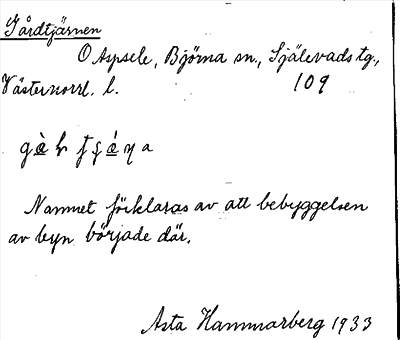 Gårdtjärnen
O Aspsele, Björna sn., Själevads tg.,
Västernorrl. l. 109
Namnet förklaras av att bebyggelsen
av byn började där.
Asta Hammarberg 1933